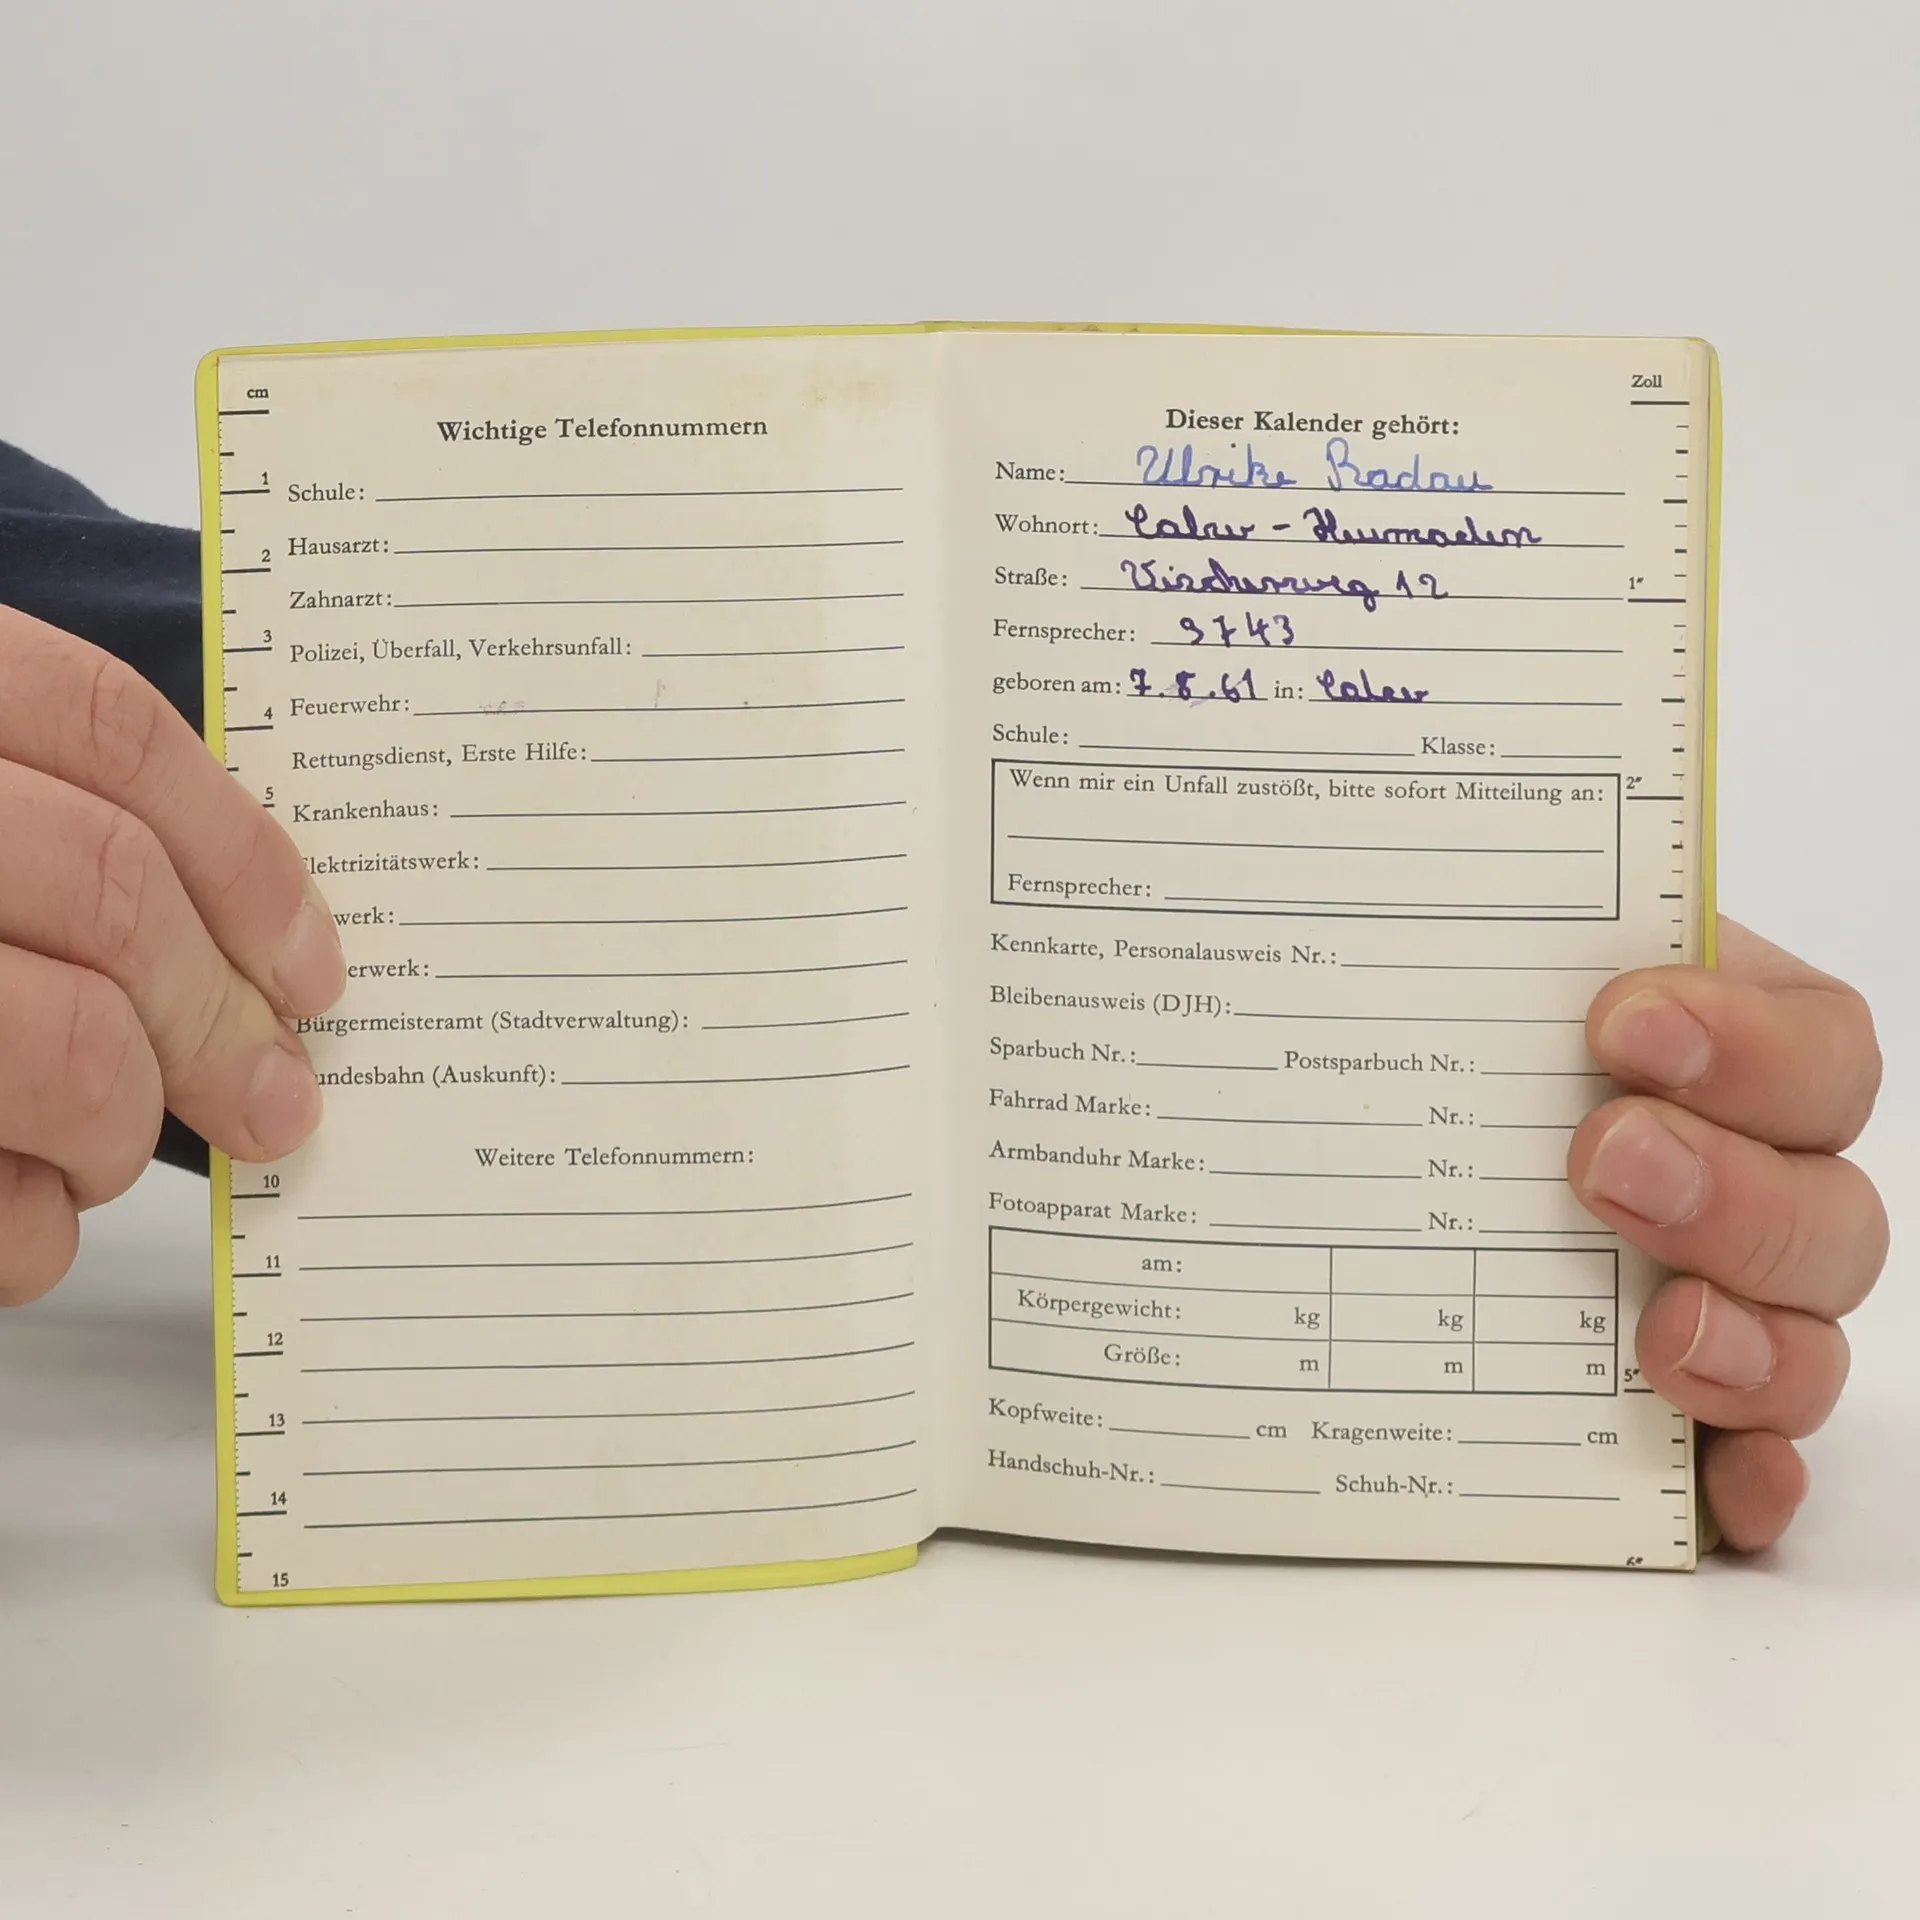 cm
Wichtige Telefonnummern
1
Schule:
2
Hausarzt:
Zahnarzt:
3
Polizei, Überfall, Verkehrsunfall:
4
Feuerwehr:
Rettungsdienst, Erste Hilfe:
5
Krankenhaus:
lektrizitätswerk:
werk:
erwerk:
Bürgermeisteramt (Stadtverwaltung):
undesbahn (Auskunft):
Weitere Telefonnummern:
10
11
12
13
14
15
Zoll
Dieser Kalender gehört:
Name: Ulrike Radau
Wohnort: Calw - Heumaden
Straße: 12
1"
Fernsprecher: 9743
geboren am: 7. .61 in: Calw
Schule: Klasse:
Wenn mir ein Unfall zustößt, bitte sofort Mitteilung an:
2"
Fernsprecher:
Kennkarte, Personalausweis Nr.:
Bleibenausweis (DJH):
Sparbuch Nr.: Postsparbuch Nr.:
Fahrrad Marke: Nr.:
Armbanduhr Marke: Nr.:
Fotoapparat Marke: Nr.:
am:
Körpergewicht: kg kg kg
Größe: m m m
5"
Kopfweite: cm Kragenweite: cm
Handschuh-Nr.: Schuh-Nr.:
6"